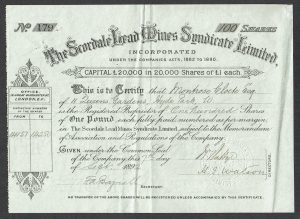 No. A79
100 SHARES
The Scordale Lead Mines Syndicate Limited.
INCORPORATED
UNDER THE COMPANIES ACTS, 1862 TO 1890.
CAPITAL £20,000 IN 20,000 Shares of £1 each.
This is to Certify that Montrose Cloete Esq
of Queens Gardens, Hyde Park, W
is the Registered Proprietor of One hundred Shares
of One Pound each fully paid, numbered as per margin
in The Scordale Lead Mines Syndicate Limited, subject to the Memorandum
of Association and Regulations of the Company.
Given under the Common Seal
of the Company this 7th day
of Sept 189
OFFICE,
LONDON, E.C.
H. G. Watson
DIRECTORS.
Secretary.
NO TRANSFER OF THE ABOVE SHARES WILL BE REGISTERED UNLESS ACCOMPANIED BY THIS CERTIFICATE.